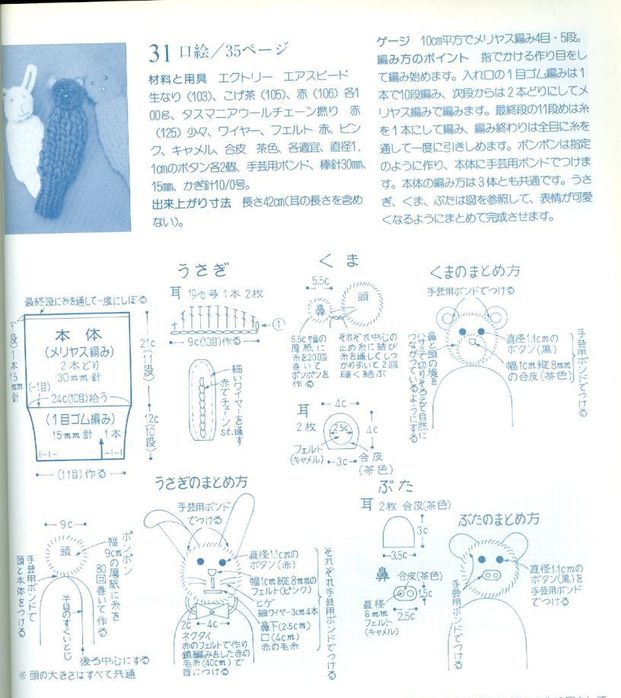 31 口絵/35ページ
材料と用具 エクトリー エアスピード
生なり(103)、こげ茶(105)、赤(106)各1
00g、タスマニアウールチェーン撚り 赤
(125)少々、ワイヤー、フェルト 赤、ピン
ク、キャメル、合皮 茶色、各適宜、直径1.
1cmのボタン各2個、手芸用ボンド、棒針30mm、
15mm、かぎ針10/0号。
出来上がり寸法 長さ42cm(耳の長さを含め
ない)。
ゲージ 10cm平方でメリヤス編み4目・5段。
編み方のポイント 指でかける作り目をし
て編み始めます。入れ口の1目ゴム編みは1
本で10段編み、次段からは2本どりにしてメ
リヤス編みで編みます。最終段の11段めは糸
を1本にして編み、編み終わりは全目に糸を
通して一度に引きしめます。ポンポンは指定
のように作り、本体に手芸用ボンドでつけま
す。本体の編み方は3体とも共通です。うさ
ぎ、くま、ぶたは図を参照して、表情が可愛
くなるようにまとめて完成させます。
最終段に糸を通して一度にしぼる
本体
(メリヤス編み)
2本どり
30mm針
(-1目)
24c(10目)拾う
(1目ゴム編み)
15mm針 1本
(11目)作る
21c
(11段)
12c
(10段)
うさぎ
耳 1本 2枚
9c(10目)作る
細いワイヤーを通す
赤でチェーンst.
くま
5.5c
鼻
頭
5.5c幅の
厚紙に
糸を20回
巻いて
ポンポン
を作る
それぞれ中心の
止め糸に結び
糸を通してしっ
かり引いて2回
硬く結ぶ
4c
耳
2枚
2.5c
4c
フェルト
(キャメル)
3c
合皮
(茶色)
くまのまとめ方
手芸用ボンドでつける
直径1.1cmの
ボタン(黒)
幅1cm縦8mm
の合皮(茶色)
手芸用ボンドでつける
9c
頭
ポンポン
幅9cmの厚紙に糸を
80回巻いて作る
手芸用ボンドで
頭と本体をつける
半目のすくいとじ
後ろ中心にする
※頭の大きさはすべて共通
うさぎのまとめ方
手芸用ボンド
でつける
直径1.1cmの
ボタン(赤)
幅1cm縦8mmの
フェルト(ピンク)
ヒゲ
細ワイヤー3cm4本
鼻下(2cm)
口(4cm)
赤の毛糸
2c
4c
ネクタイ
赤のフェルトで作り
鎖編みをした赤の
毛糸(40cm)で
首につける
それぞれ手芸用ボンドでつける
ぶた
耳 2枚 合皮(茶色)
3c
3.5c
鼻 合皮(茶色)
直径
6mm
フェルト
(キャメル)
1.5c
2.5c
ぶたのまとめ方
直径1.1cmの
ボタン(黒)を
手芸用ボンド
でつける